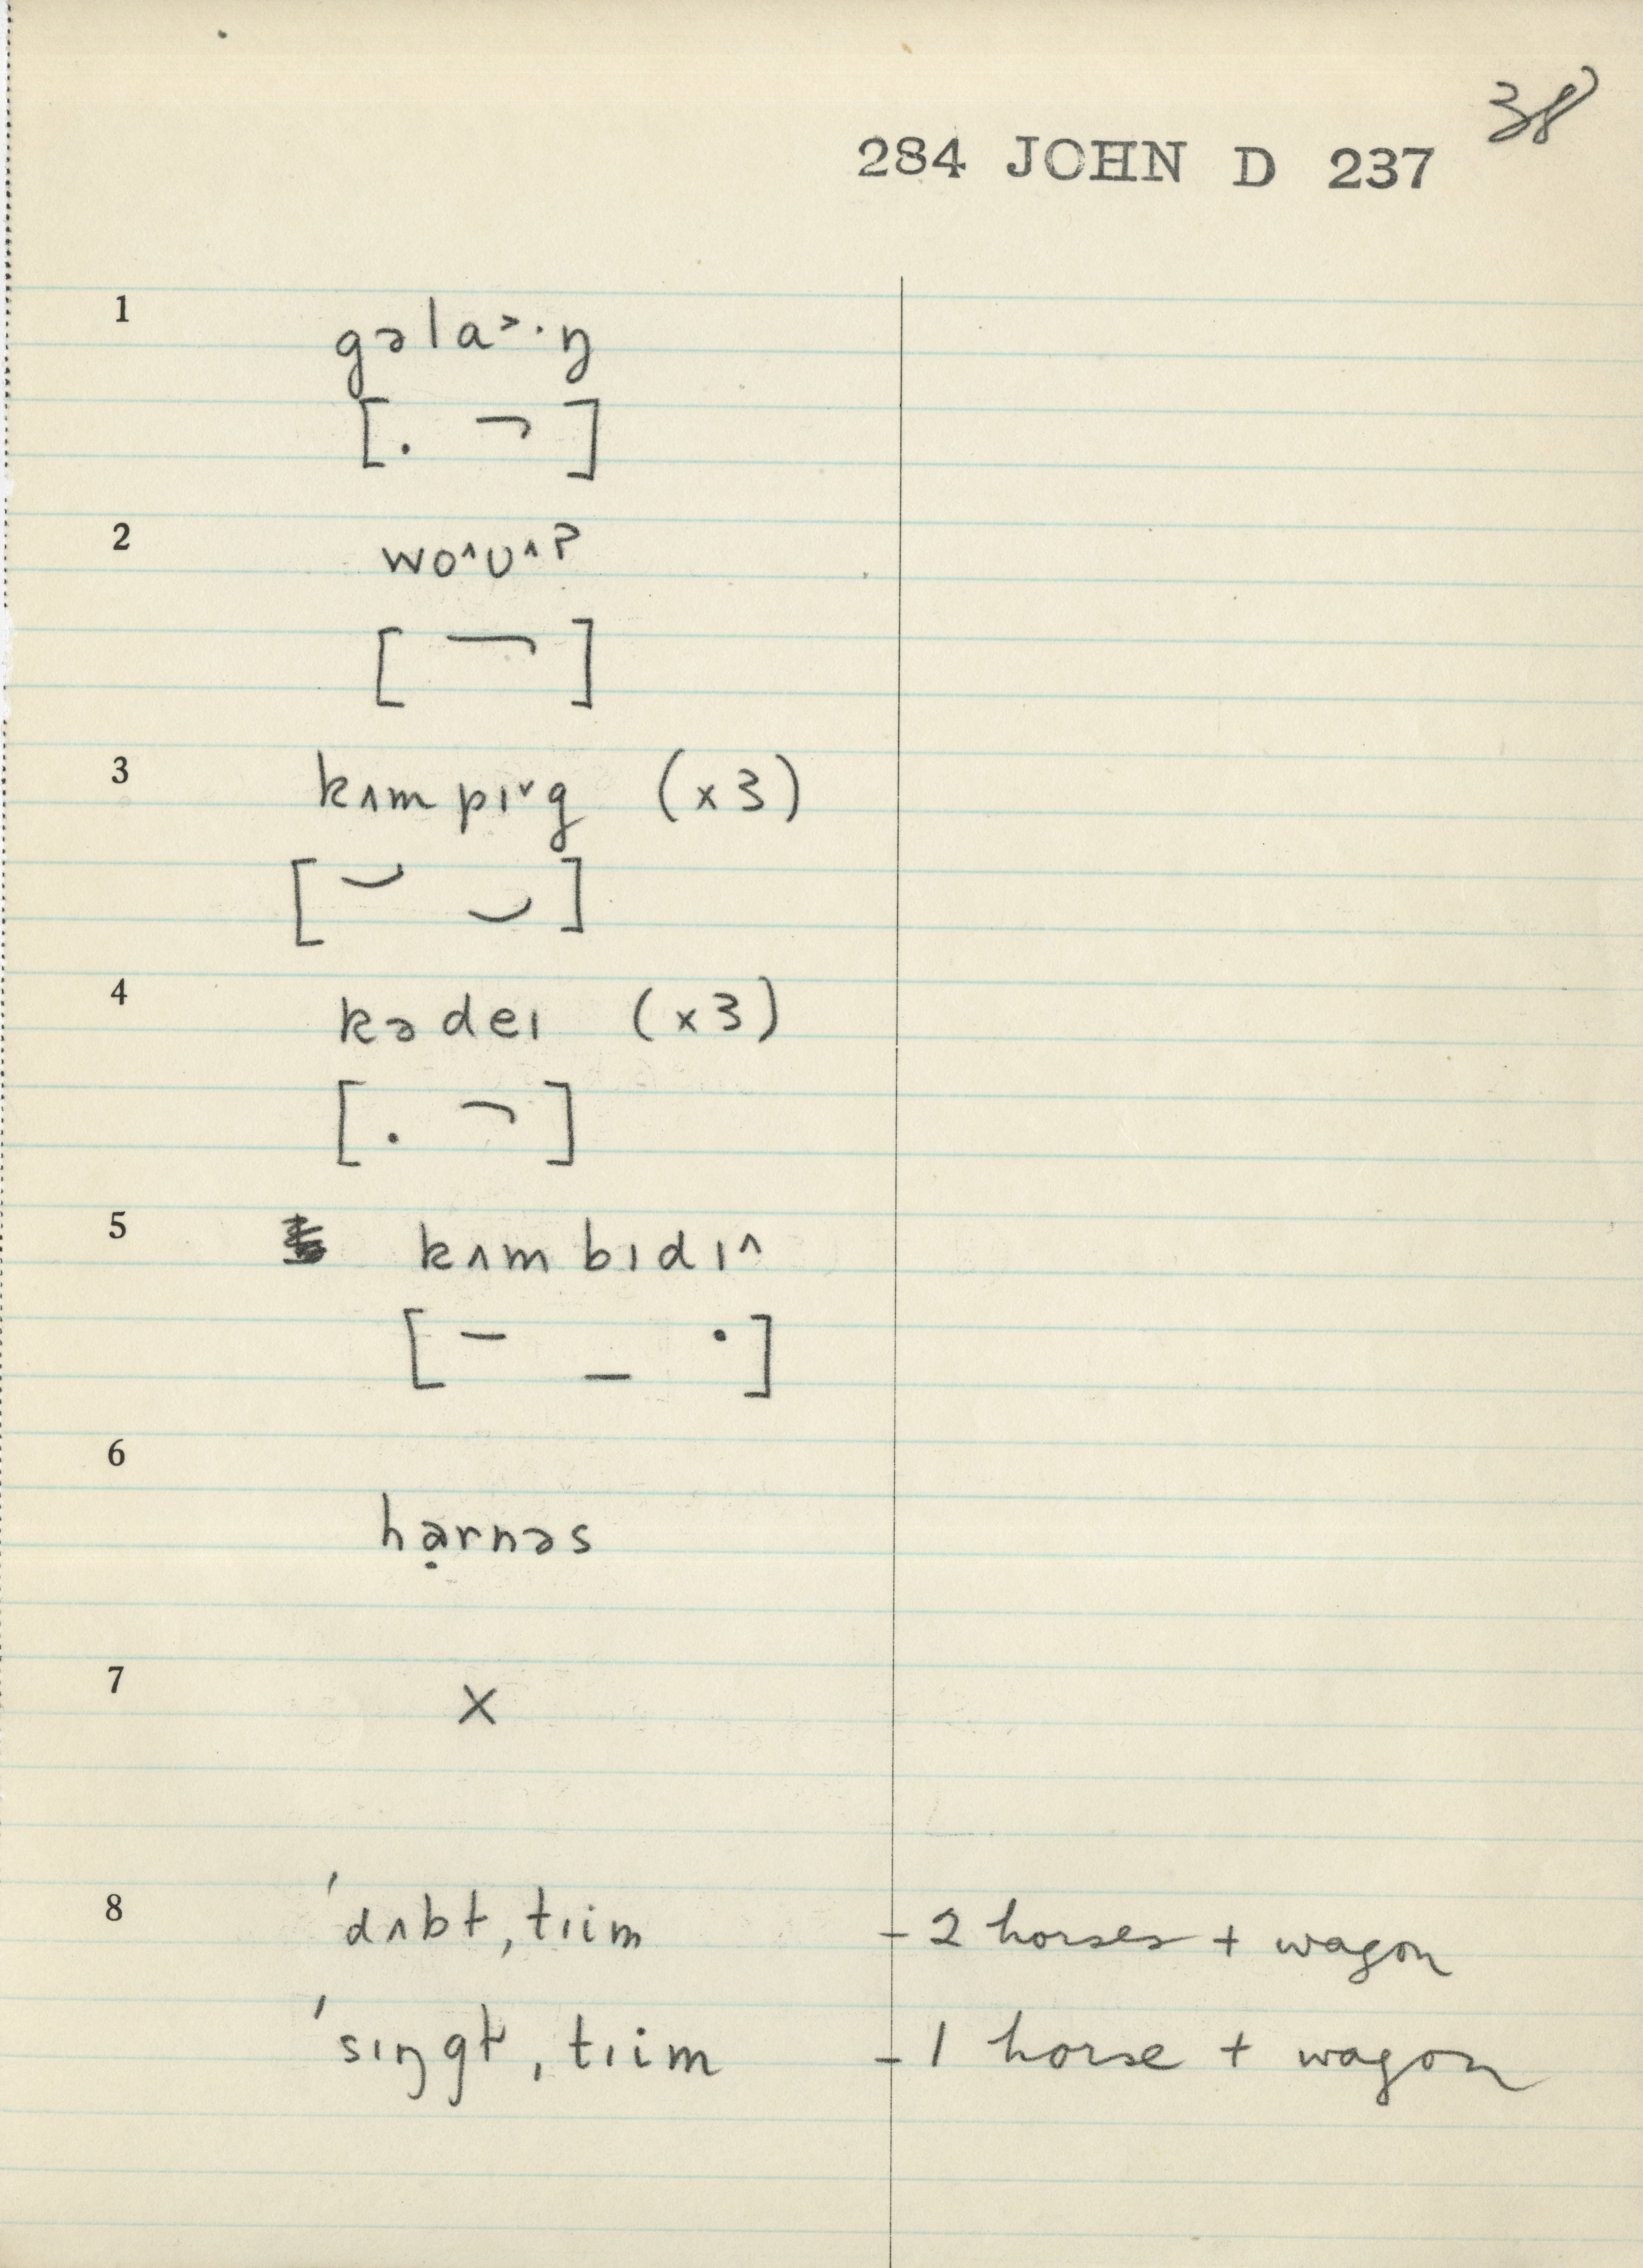 38
284 JOHN D 237
1
gəla˃·ŋ
[. ¬ ]
2
wo^ʊ^ʔ
[ ¬ ]
3
kʌmpɪ˅g (x3)
[ ‿ ‿ ]
4
kədeɪ (x3)
[ . ¬ ]
5
kʌmbɪdɪ^
[ – _ · ]
6
hạrnəs
7
X
8
ˈdʌbɫˌtɪim - 2 horses + wagon
ˈsɪŋgɫˌtɪim - 1 horse + wagon